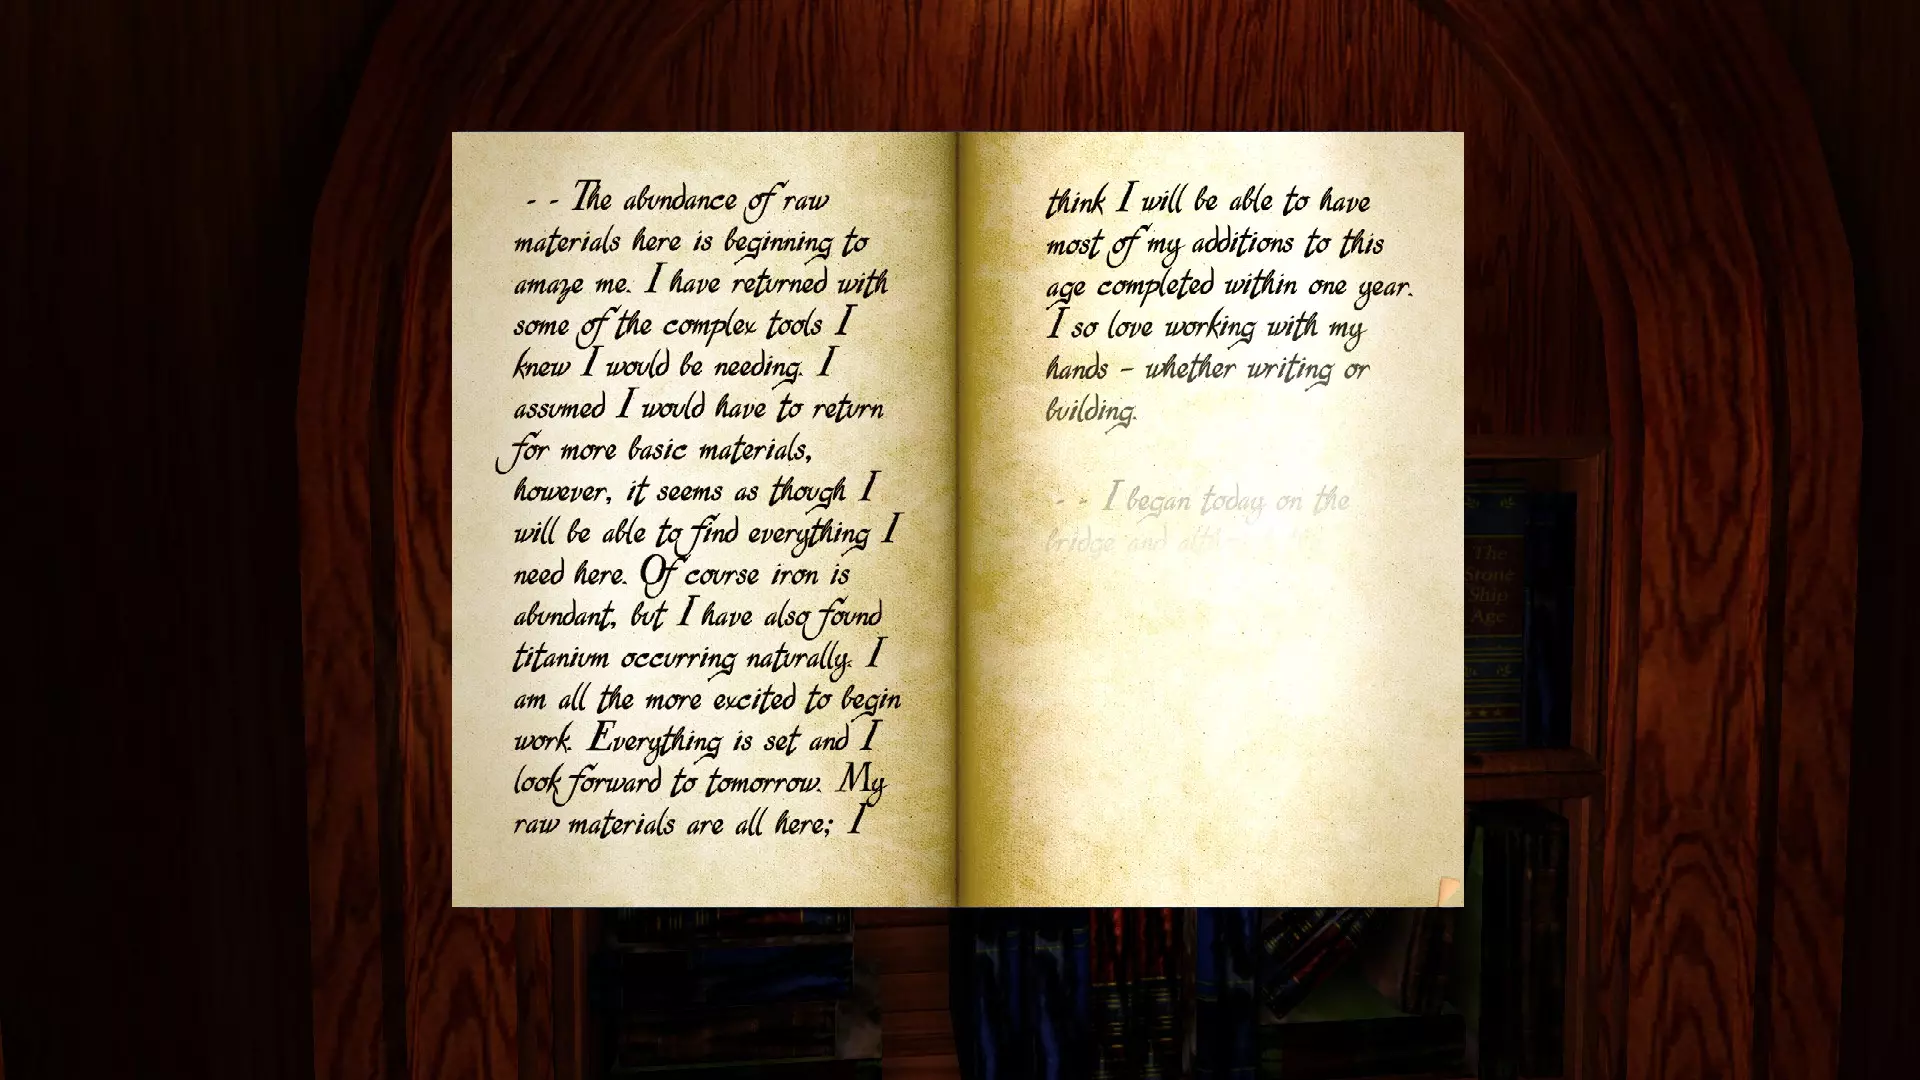 - - The abundance of raw
materials here is beginning to
amaze me. I have returned with
some of the complex tools I
knew I would be needing. I
assumed I would have to return
for more basic materials,
however, it seems as though I
will be able to find everything I
need here. Of course iron is
abundant, but I have also found
titanium occurring naturally. I
am all the more excited to begin
work. Everything is set and I
look forward to tomorrow. My
raw materials are all here; I
think I will be able to have
most of my additions to this
age completed within one year.
I so love working with my
hands - whether writing or
building.
- - I began today on the
bridge and
The
Stone
Ship
Age